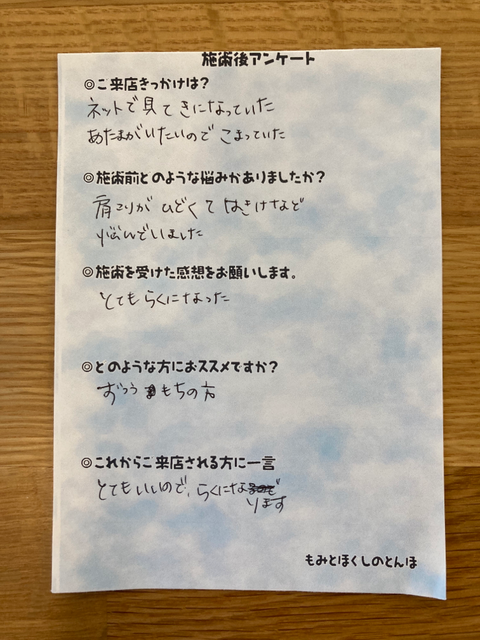 施術後アンケート
◎ご来店きっかけは?
ネットで見てきになっていた
あたまがいたいのでこまっていた
◎施術前とのような悩みかありましたか?
肩こりがひどくてはきけなど
悩んでいました
◎施術を受けた感想をお願いします。
とてもらくになった
◎とのような方におススメですか?
ずつうもちの方
◎これからご来店される方に一言
とてもいいので、らくにな
ります
もみとほくしのとんぼ